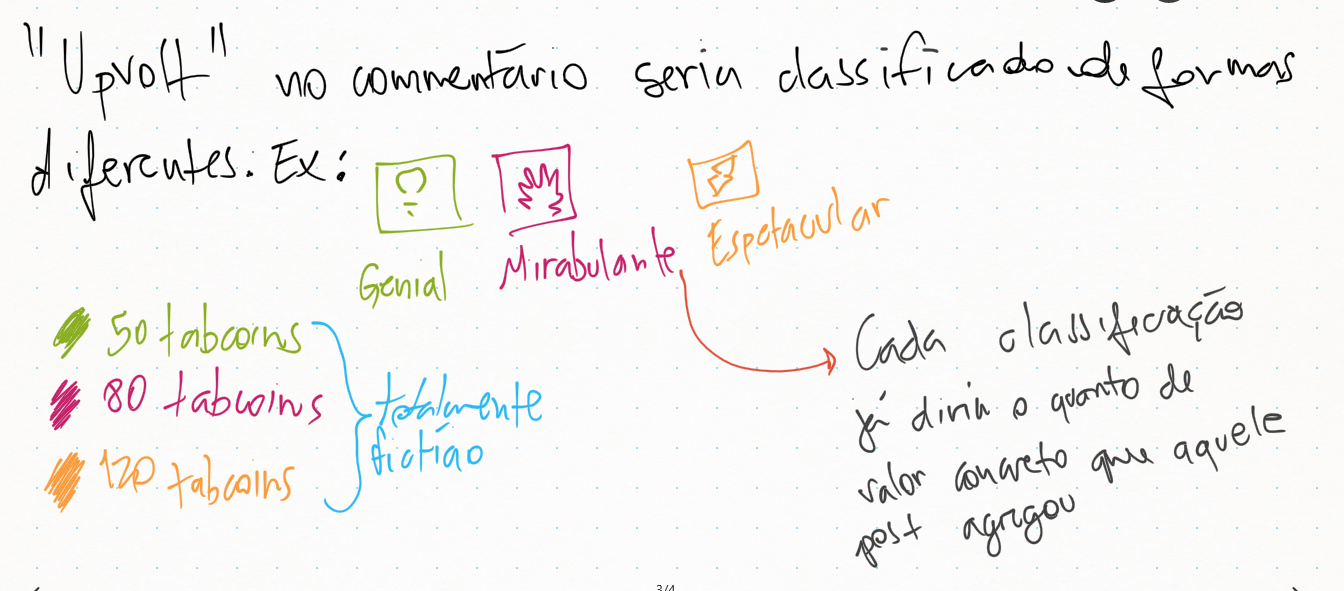 "Upvolt" no commentário seria classificado de formas
diferentes. Ex:
Genial
Mirabulante
Espetacular
50 tabcoins
80 tabcoins
120 tabcoins
totalmente
fictião
Cada classificação
já diria o quanto de
valor concreto que aquele
post agregou
3/4